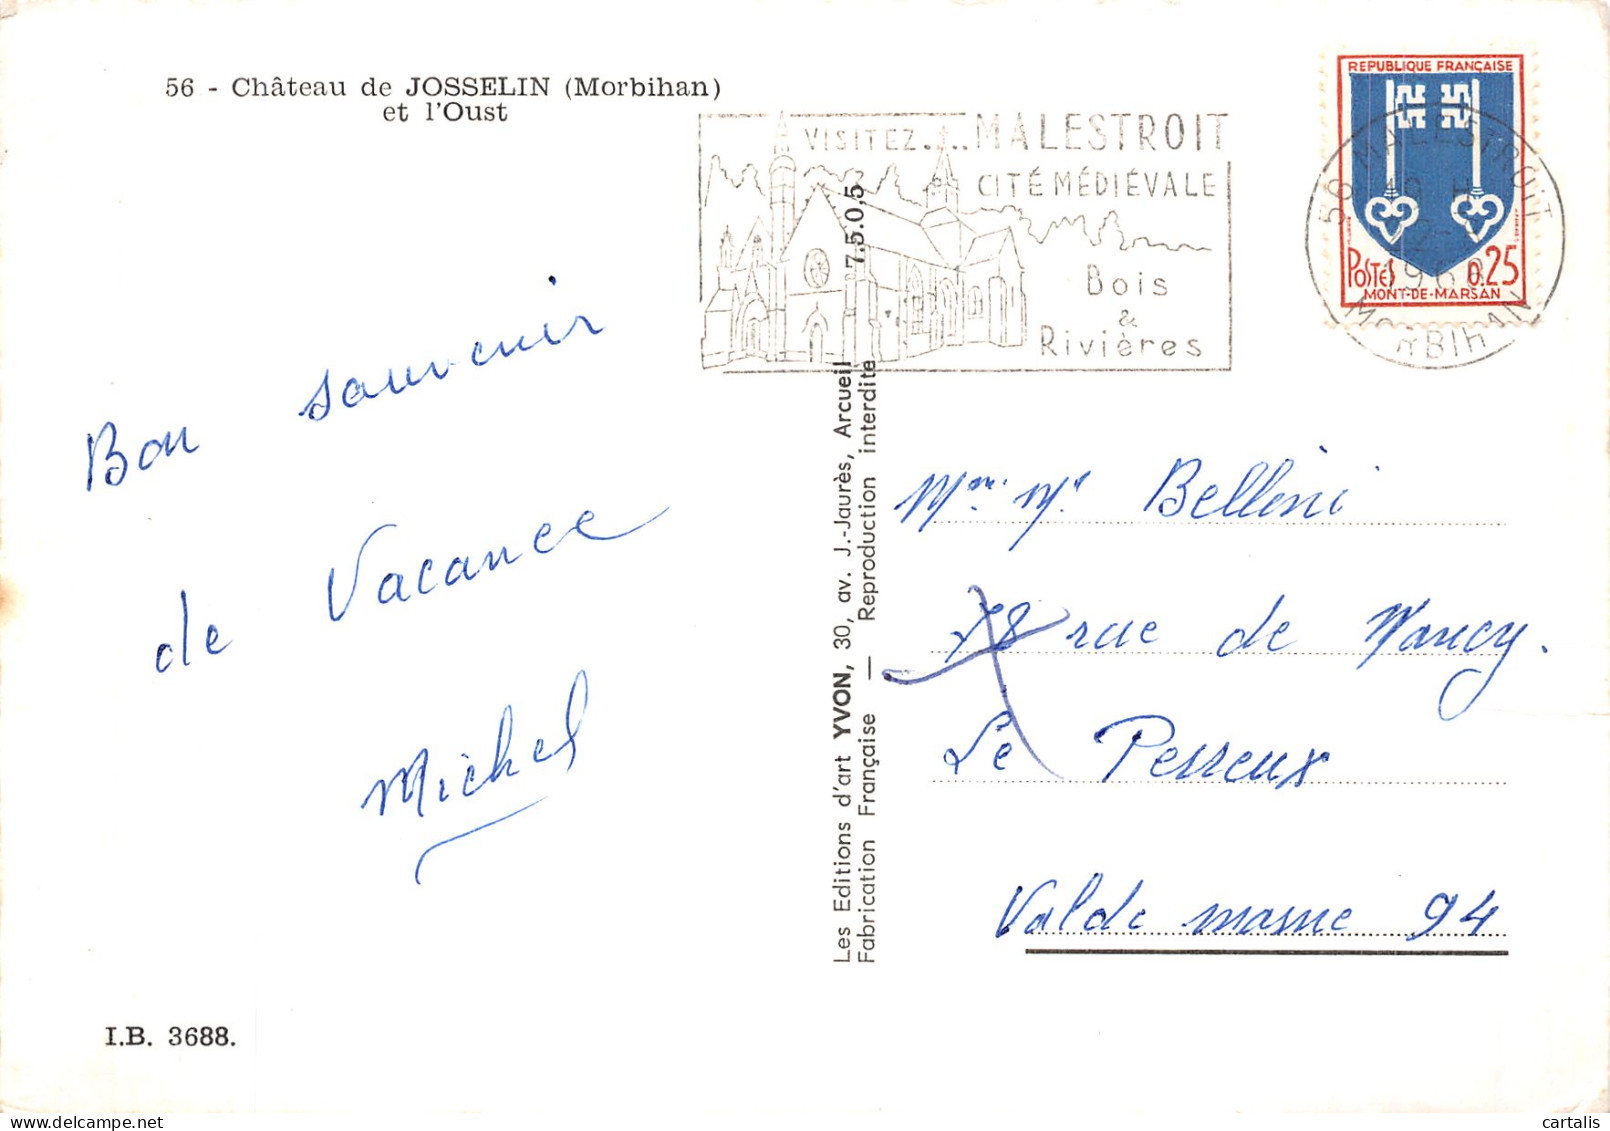 56 - Château de JOSSELIN (Morbihan)
et l'Oust
VISITEZ.... MALESTROIT
CITÉ MÉDIÉVALE
Bois
&
Rivières
REPUBLIQUE FRANÇAISE
POSTES 0.25
MONT-DE-MARSAN
56 MALESTROIT
1968
MORBIHAN
Bon souvenir
de Vacance
Michel
Mme. Mr Bellini
78 rue de Nancy.
Le Perreux
Val de marne 94
Les Editions d'art YVON, 30, av. J.-Jaurès, Arcueil 7.5.0.5
Fabrication Française — Reproduction interdite
I.B. 3688.
cartalis